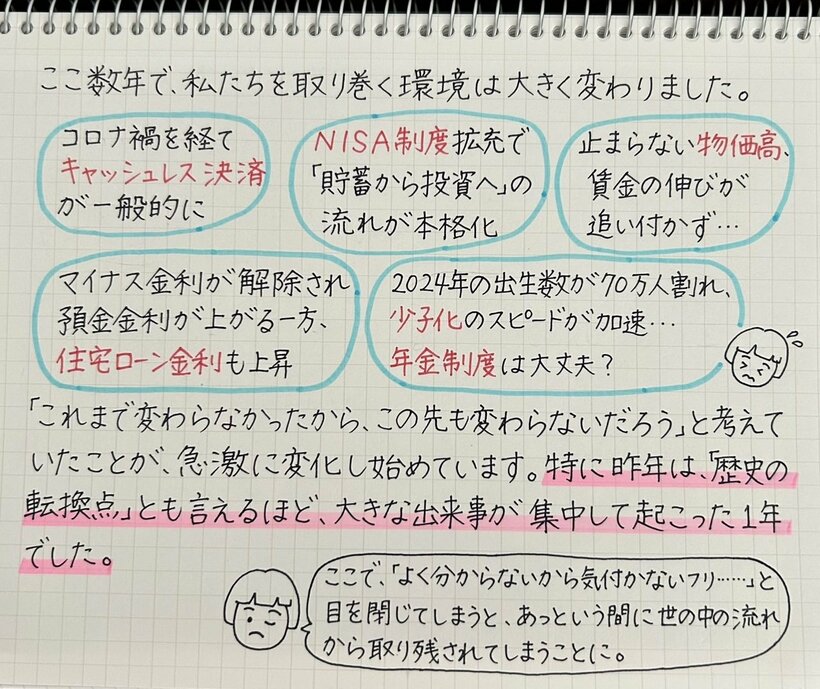 ここ数年で、私たちを取り巻く環境は大きく変わりました。
コロナ禍を経て
キャッシュレス決済
が一般的に
NISA制度拡充で
「貯蓄から投資へ」の
流れが本格化
止まらない物価高、
賃金の伸びが
追い付かず…
マイナス金利が解除され
預金金利が上がる一方、
住宅ローン金利も上昇
2024年の出生数が70万人割れ、
少子化のスピードが加速…
年金制度は大丈夫?
「これまで変わらなかったから、この先も変わらないだろう」と考えて
いたことが、急激に変化し始めています。特に昨年は、「歴史の
転換点」とも言えるほど、大きな出来事が集中して起こった1年
でした。
ここで、「よく分からないから気付かないフリ……」と
目を閉じてしまうと、あっという間に世の中の流れ
から取り残されてしまうことに。